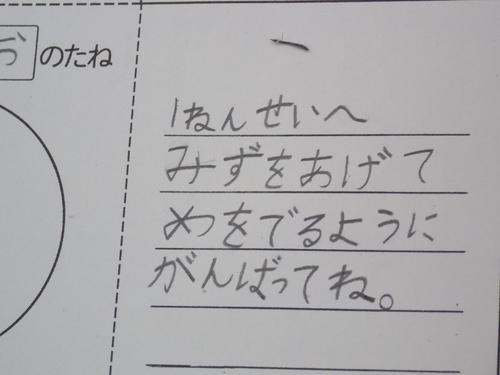 のたね
1ねんせいへ
みずをあげて
めつをでるように
がんばってね。